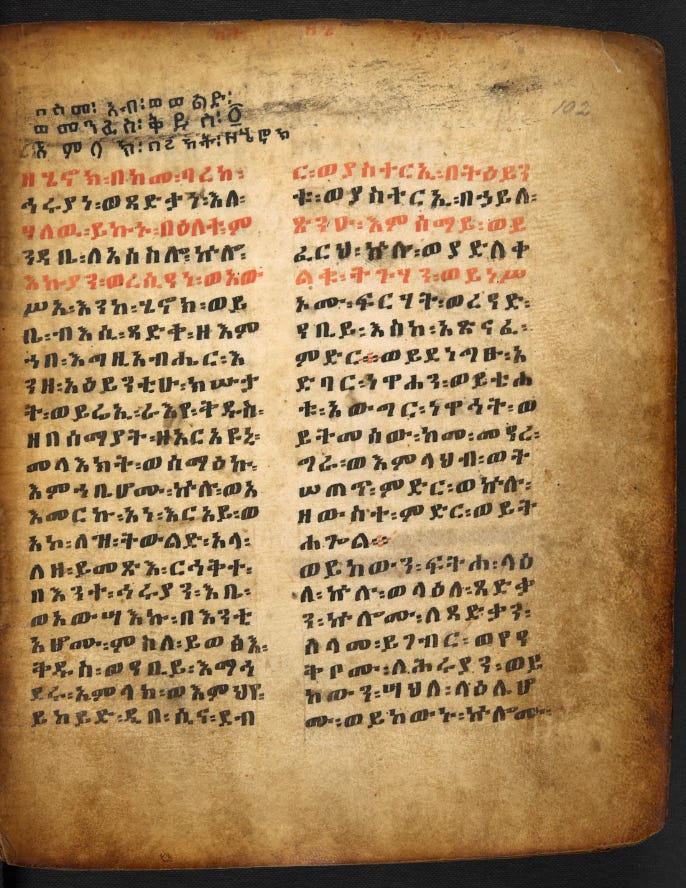 በስመ፡ አብ፡ ወወልድ፡
ወመንፈስ፡ ቅዱስ፡ ፩
አምላክ፡ በረከት፡ ዘሄኖክ
ዘሄኖክ፡ በከመ፡ ባረከ፡
ኅሩያነ፡ ወጻድቃነ፡ እለ፡
ሃለዉ፡ ይኩኑ፡ በዕለተ፡ ም
ንዳቤ፡ ለአሰስሎ፡ ኵሎ፡
እኩያን፡ ወረሲዓን፡ ወአው
ሥአ፡ እንከ፡ ሄኖክ፡ ወይ
ቤ፡ ብእሲ፡ ጻድቅ፡ ዘእም
ኀበ፡ እግዚአብሔር፡ እ
ንዘ፡ አዕይንቲሁ፡ ክሡታ
ት፡ ወይሬኢ፡ ራእየ፡ ቅዱስ፡
ዘበሰማያት፡ ዘአርአዩኒ፡
መላእክት፡ ወሰማዕኩ፡
እምኀቤሆሙ፡ ኵሎ፡ ወአ
እመርኩ፡ አነ፡ እርአይ፡ ወ
አኮ፡ ለዝ፡ ትውልድ፡ አላ፡
ለዘ፡ ይመጽእ፡ ርኅቅት፡
በእንተ፡ ኅሩያን፡ እቤ፡
ወአውሣእኩ፡ በእንቲ
አሆሙ፡ ምስለ፡ ይወፅእ፡
ቅዱስ፡ ወዓቢይ፡ እማኅ
ደሩ፡ አምላከ፡ ወእምህየ፡
ይከይድ፡ ዲበ፡ ሲና፡ ደብ
ር፡ ወያስተርኢ፡ በትዕይን
ቱ፡ ወያስተርኢ፡ በኃይለ፡
ጽንዑ፡ እምሰማይ፡ ወይ
ፈርህ፡ ኵሉ፡ ወያድለቀ
ልቁ፡ ትጉሃን፡ ወይነሥ
ኦሙ፡ ፍርሃት፡ ወረዓድ፡
ዓቢይ፡ እስከ፡ አጽናፈ፡
ምድር። ወይደነግፁ፡ አ
ድባር፡ ነዋኀን፡ ወይቴሐ
ቱ፡ አውግር፡ ነዋኅት፡ ወ
ይትመሰው፡ ከመ፡ መዓረ፡
ግራ፡ ወእምላህብ፡ ወት
ሠጠም፡ ምድር፡ ወኵሉ፡
ዘውስተ፡ ምድር፡ ወይት
ሐጐል።
ወይከውን፡ ፍትሐ፡ ላዕ
ለ፡ ኵሉ፡ ወላዕለ፡ ጻድቃ
ን፡ ኵሎሙ፡ ለጻድቃን፡
ሰላመ፡ ይገብር፡ ወየዓ
ቅቦሙ፡ ለኅሩያን፡ ወይ
ከውን፡ ሣህለ፡ ላዕሌሆ
ሙ፡ ወይከውኑ፡ ኵሎሙ፡